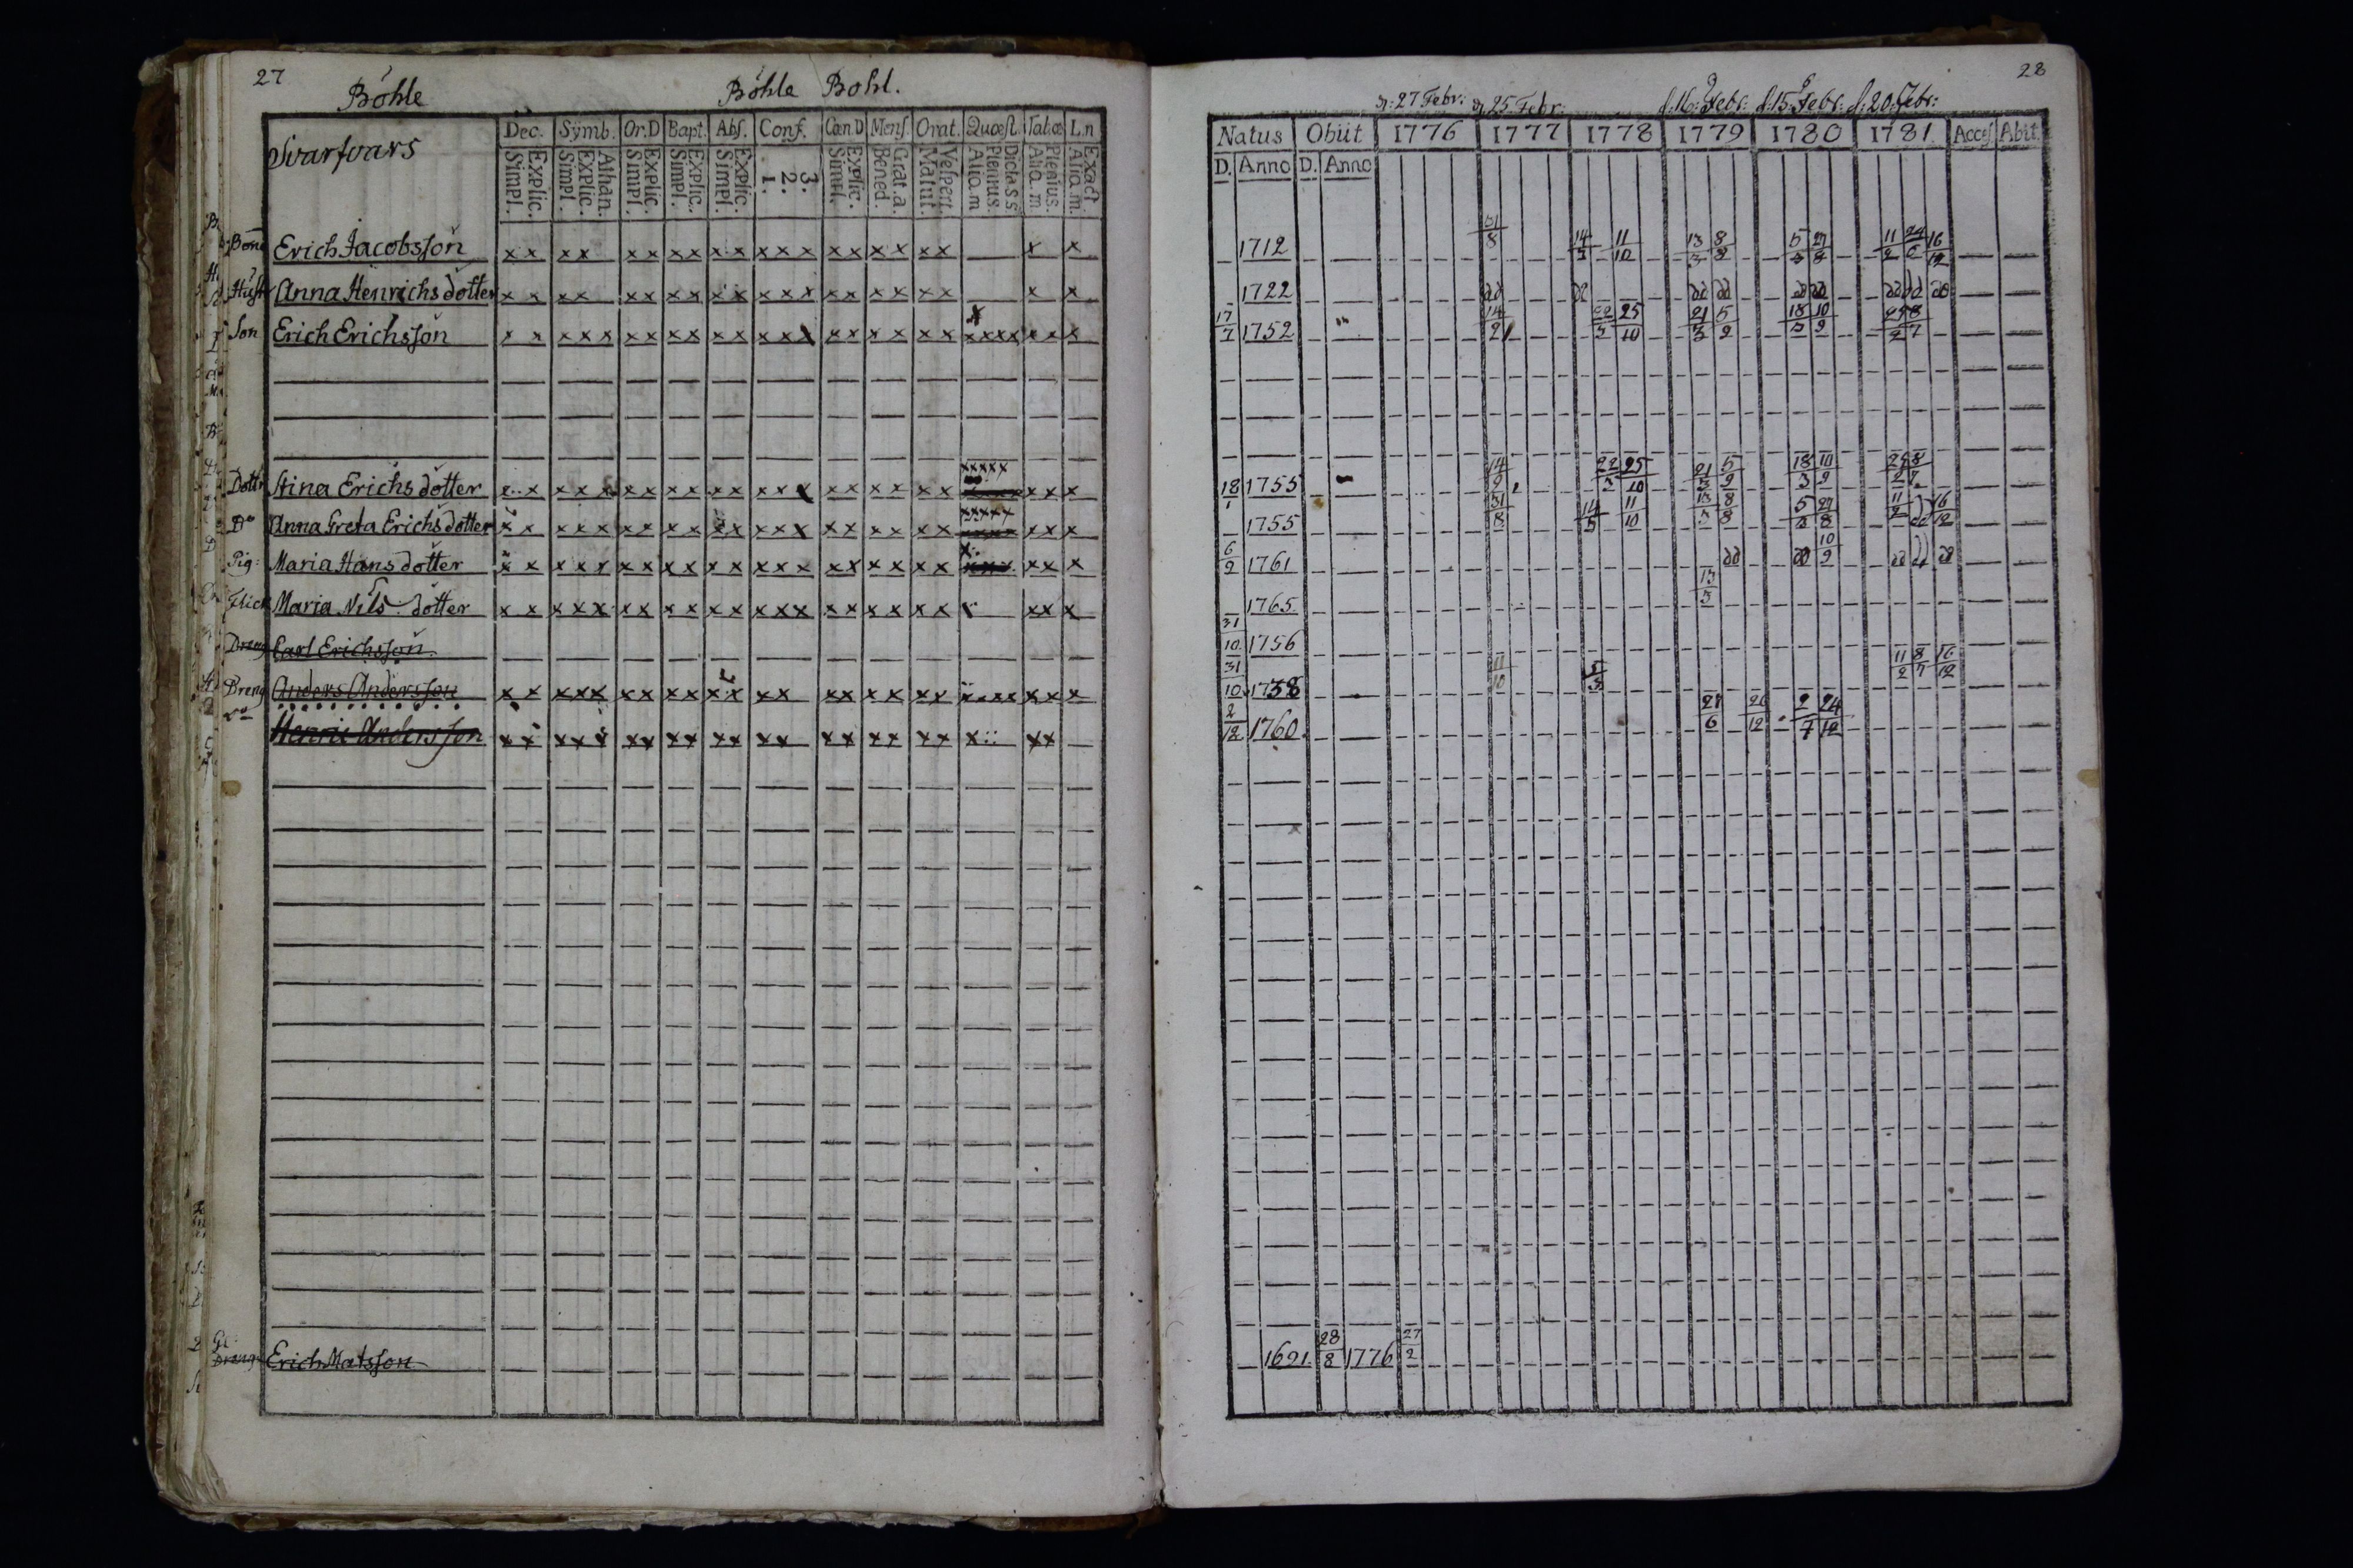 27
Böhle
Böhle Bohl.
Svarfvars
Dec. Symb. Or.D Bapt. Abs. Conf. Cœn.D Mens. Orat. Quæst. Tab.œ L.n
Simpl. Explic. Simpl. Explic. Athan. Simpl. Explic. Simpl. Explic. Simpl. Explic. 1. 2. 3. Simpl. Explic. Bened. Grat.a. Matut. Vespert. Aliq.m Plenius. Dicta S.S. Aliq.m Plenius. Aliq.m. Exact.
Bone Erich Jacobsson x x x x x x x x x x x x x x x x x x x x x
Hustr Anna Henrichs dotter x x x x x x x x x x x x x x x x x x x x x
Son Erich Erichsson x x x x x x x x x x x x x x x x x x x x x x x x x x x x
Dottr Stina Erichs dotter
Do Anna Greta Erichs dotter
Pig: Maria Hans dotter
Flick Maria Nils dotter
Dreng Carl Erichsson
Dreng Anders Andersson
Do Henric Andersson
Gl:
Dreng Erich Matsson
28
d: 27 Febr: d 25 Febr: d. 16: Febr: d. 15: Febr: d: 20: Febr:
Natus Obiit 1776 1777 1778 1779 1780 1781 Acces Abit
D. Anno D. Anno
1712 31/8 14/3 11/10 13/3 8/8 5/3 27/8 11/2 24/6 16/12
1722 dd d dd dd dd dd dd dd dd
17/7 1752 14/2 22/3 25/10 21/3 5/9 18/3 10/9
18/1 1755 14/2 22/3 25/10 21/3 5/9 18/3 10/9
1755 31/8 14/3 11/10 13/3 8/8 5/3 27/8 11/2 dd 16/12
6/2 1761 dd dd 10/9 dd dd dd
1765. 13/3
31/10 1756
31/10 1758 11/10 5/3 11/2 8/7 16/12
2/12 1760 27/6 26/12 2/7 24/12
1691. 28/8 1776 27/2